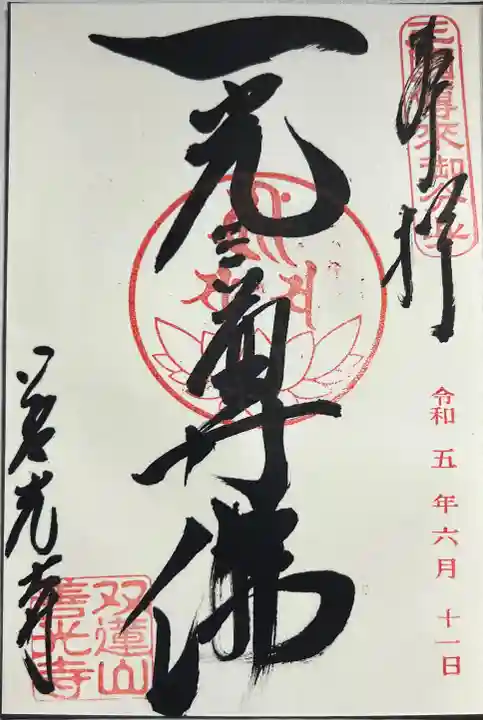 奉拝
三國傳来御分身
令和五年六月十一日
一光三尊佛
善光寺
双蓮山
善光寺